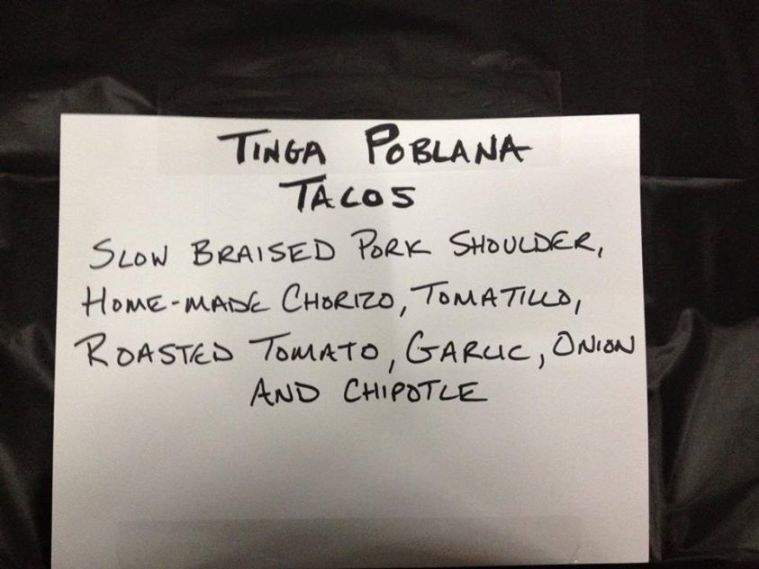 TINGA POBLANA
TACOS
SLOW BRAISED PORK SHOULDER,
HOME-MADE CHORIZO, TOMATILLO,
ROASTED TOMATO, GARLIC, ONION
AND CHIPOTLE